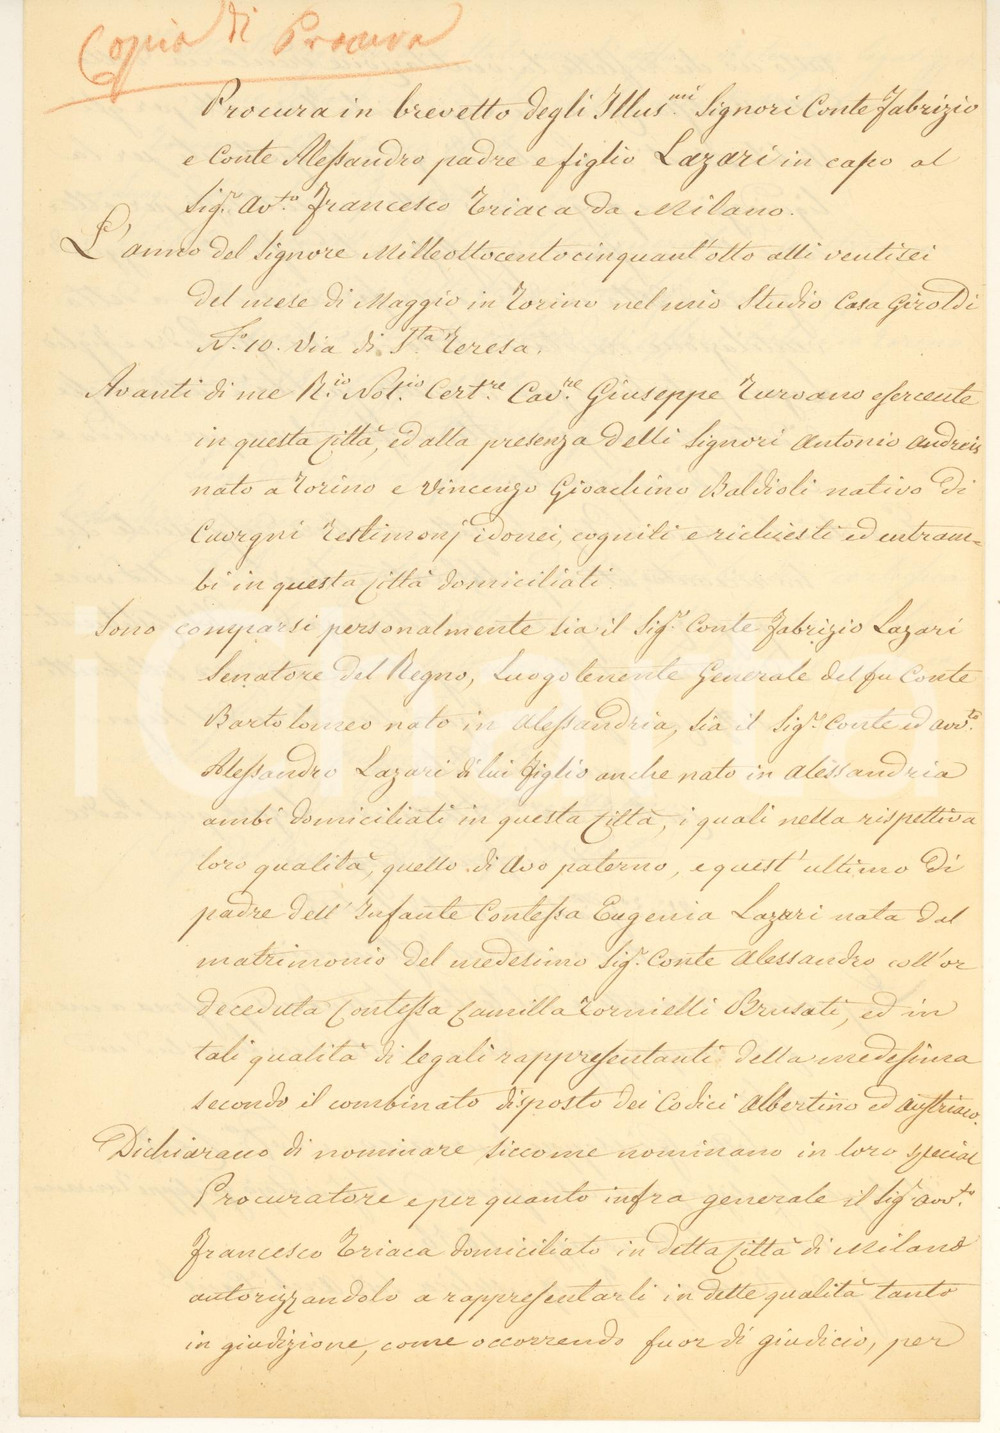 Copia di Procura
Procura in brevetto degli Illus.mi Signori Conte Fabrizio
e Conte Alessandro padre e figlio Lazari in capo al
Sig.r Av.to Francesco Triaca da Milano.
L'anno del Signore Milleottocentocinquant'otto alli ventisei
del mese di Maggio in Torino nel mio Studio Casa Giroldi
N.o 10. Via di S.ta Teresa.
Avanti di me R.io Not.io Cert.re Cav.re Giuseppe Turvano esercente
in questa Città, ed alla presenza delli Signori Antonio Andreis
nato a Torino e Vincenzo Gioachino Baldioli nativo di
Cuorgnì Testimonj idonei, cogniti e richiesti ed entram=
bi in questa Città domiciliati.
Sono comparsi personalmente sia il Sig.r Conte Fabrizio Lazari
Senatore del Regno, Luogotenente Generale del fu Conte
Bartolomeo nato in Alessandria, sia il Sig.r Conte ed Avv.to
Alessandro Lazari di lui figlio anche nato in Alessandria
ambi domiciliati in questa Città, i quali nella rispettiva
loro qualità, quello di Avo paterno, e quest'ultimo di
padre dell'Infante Contessa Eugenia Lazari nata dal
matrimonio del medesimo Sig.r Conte Alessandro coll'or
deceduta Contessa Camilla Tornielli Brusati, ed in
tali qualità di legali rappresentanti della medesima
secondo il combinato disposto dei Codici Albertino ed Austriaco.
Dichiarano di nominare siccome nominano in loro special
Procuratore e per quanto infra generale il Sig.r Avv.to
Francesco Triaca domiciliato in detta Città di Milano
autorizzandolo a rappresentarli in dette qualità tanto
in giudizione, come occorrendo fuor di giudicio, per